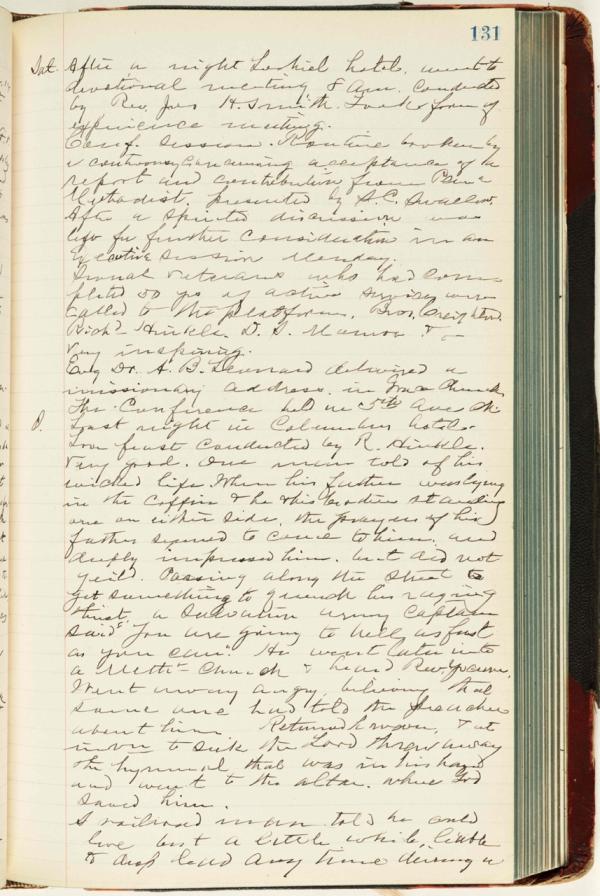 131
Sat. After a night Lochiel hotel, went to
devotional meeting 8 Am. Conducted
by Rev. Jas H. Smith. Took form of
experience meeting.
Conf. session. Routine broken by
a controversy concerning acceptance of the
report and contribution from Penna
Methodist, presented by S. C. Swallow.
After a spirited discussion was
left for further consideration in an
Executive session Monday.
Several veterans who had com-
pleted 50 yrs of active service were
called to the platform, Bros. Creighton
Richd Hinkle, D. S. Monroe &c
Very inspiring.
Evg Dr. A. B. Leonard delivered a
missionary address in Grace Church
The Conference held in 5th Ave Ch.
S. Last night in Columbus hotel.
Love feast conducted by R. Hinkle.
Very good. One man told of his
wicked life. When his father was lying
in the coffin & he & his brother standing
one on either side, the prayers of his
father seemed to come to him and
deeply impressed him, but did not
yeild. Passing along the street to
get something to quench his raging
thirst, a Salvation army Captain
said "you are going to hell as fast
as you can". He went later into
a Meth. Church & heard Rev Yocum.
Went away angry, believing that
some one had told the preacher
about him. Returned however, & at
to seek the Lord threw away
the hymnal that was in his hand
and went to the altar where God
saved him.
A railroad man told he could
live but a little while, liable
to drop dead any time during a